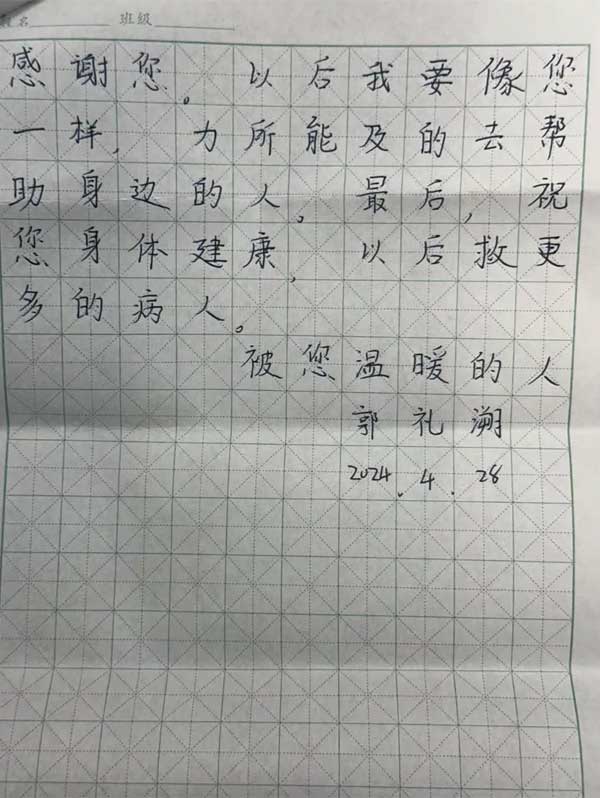 姓名 班级
感谢您。以后我要像您
一样,力所能及的去帮
助身边的人。最后,祝
您身体建康,以后救更
多的病人。
被您温暖的人
郭礼溯
2024.4.28